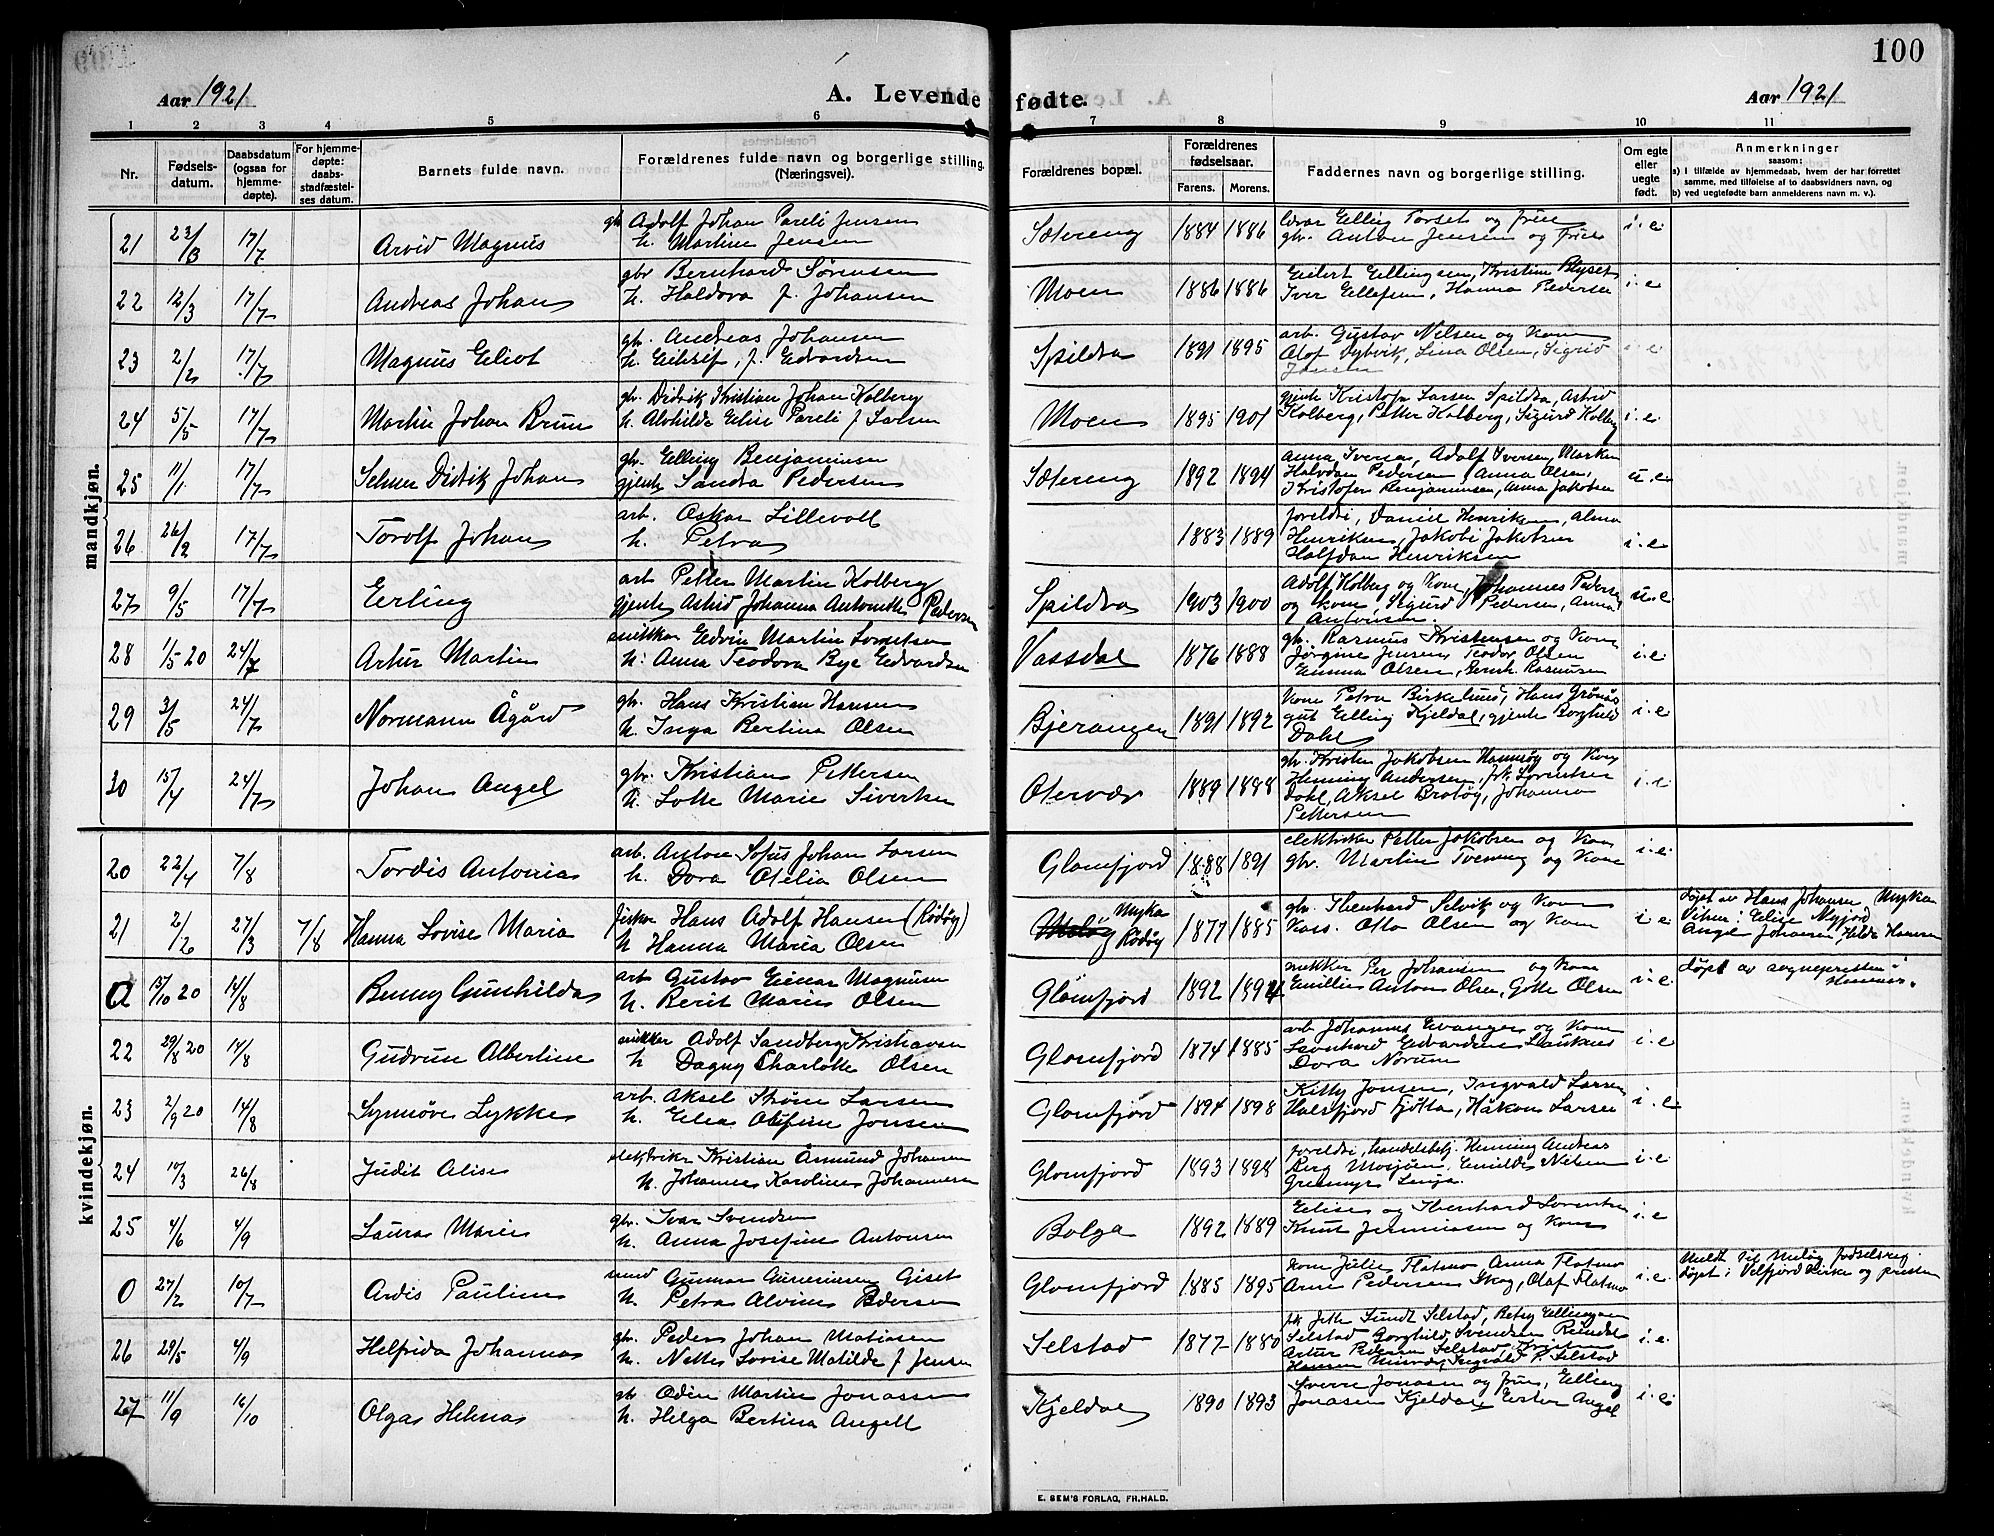 100
Aar 1921
A. Levende fødte.
Aar 1921
1 2 3 4 5 6 7 8 9 10 11
Nr.
Fødsels-
datum.
Daabsdatum
(ogsaa for
hjemme-
døpte).
For hjemme-
døpte:
daabs-
stadfæstel-
ses datum.
Barnets fulde navn.
Forældrenes fulde navn og borgerlige stilling.
(Næringsvei).
Forældrenes bopæl.
Forældrenes
fødselsaar.
Farens. Morens.
Faddernes navn og borgerlige stilling.
Om egte
eller
uegte
født.
Anmerkninger
saasom:
a) I tilfælde av hjemmedaab, hvem der har forrettet
samme, med tilføielse af to daabsvidners navn, og
b) ved uegtefødte barn anmelderens navn m. v.).
mandkjøn.
21 23/3 17/7 Arvid Magnus
gb. Adolf Johan Pareli Jensen
h. Martine Jensen
Sætereng 1884 1886
Elling Torset og frue
gbr. Anton Jensen og Frue
i. e
22 12/3 17/7 Andreas Johan
gbr Bernhard Sørensen
h. Haldora f. Johansen
Moen 1886 1886
Eilert Ellingsen, Kristine Blyset
Iver Ellefsen, Hanna Pedersen
i. e
23 2/2 17/7 Magnus Eliot
gb. Andreas Johansen
h. Eilsif, f. Edvardsen
Spildra 1891 1895
arb. Gustav Nilsen og Kone
Olof Dybvik, Lina Olsen, Sigrid
Jensen
i. e
24 5/5 17/7 Martin Johan Bruun
gb. Didrik Kristian Johan Kolberg
h. Alvhilde Eline Pareli f. Larsen
Moen 1895 1901
gjente Kristofa Larsen Spildra, Astrid
Kolberg, Petter Kolberg, Sigurd Kolberg
i. e
25 11/1 17/7 Selmer Didrik Johan
gbr. Elling Benjaminsen
gjente Sandra Pedersen
Sætereng 1892 1894
Anna Iversen, Adolf Iversen,
Halvdan Pedersen, Anna Olsen,
Kristofer Benjaminsen, Anna Jakobsen
u. e
26 26/2 17/7 Torolf Johan
arb. Oskar Lillevoll
h. Petra
1883 1889
foreldri, Daniel Henriksen, Alma
Henriksen, Jakobi Jakobsen
Halfdan Henriksen
i. e
27 9/5 17/7 Erling
arb Petter Martin Kolberg
gjente Astrid Johanna Antonette Pedersen
Spildra 1903 1900
Adolf Kolberg og Kone, Johannes Pedersen
og kone, Sigurd Pedersen, Anna
Antonsen.
u. e
28 1/5 20 24/7 Artur Martin
snekker Edvin Martin Lorntsen
h. Anna Teodora Bye Edvardsen
Vassdal 1876 1888
gb. Rasmus Kristensen og Kone
Jørgine Jensen, Teodor Olsen
Emma Olsen, Bernh. Rasmusen
i. e
29 3/5 24/7 Normann Ågård
gb. Hans Kristian Hansen
h. Inga Bertina Olsen
Bjerangen 1891 1892
Kone Petra Birkelund, Hans Grønås
gut Elling Kjeldal, gjente Borghild
Dahl
i. e
30 15/4 24/7 Johan Angel
gbr. Kristian Pettersen
h. Lotte Marie Siverten
Otervær 1889 1898
gb. Kristen Jakobsen Hammøy og Kone
Henning Andersen, frk. Lorentsen
Dahl, Aksel Bratøy, Johanna
Pettersen
i. e
kvindekjøn.
20 22/4 7/8 Tordis Antonia
arb. Anton Sofus Johan Larsen
h. Dora Otelia Olsen
Glomfjord 1888 1891
elektriker Petter Jakobsen og Kone
gbr. Martin Tvenning og Kone
i. e
21 2/2 27/3 7/8 Hanna Lovise Maria
fisker Hans Adolf Hansen (Rødøy)
h Hanna Maria Olsen
Myken
Rødøy 1877 1885
gb. Ibenhard Selvik og Kone
Kass. Otto Olsen og Kone
i e
døpt av Hans Johansen Myken
Vitner: Elise Nyfjord
Angel Johansen, Hilda Hansen
a 15/10 20 14/8 Benny Gunhilda
arb Gustav Einar Magnusen
h. Berit Marie Olsen
Glomfjord 1892 1894
snekker Per Johansen og Kone
Emilie Antons Olsen, Gotte Olsen
i. e
døpt av sogneprestens
22 29/8 20 14/8 Gudrun Albertine
snikker Adolf Sandberg Kristiansen
h Dagny Charlotte Olsen
Glomfjord 1874 1885
arb Johannes Evanger og Kone
Leonhard Edvardsen
Dora Norum
i. e
23 2/9 20 14/8 Synnøve Lykke
arb. Aksel Strøm Larsen
h. Elea Olefine Jensen
Glomfjord 1894 1898
Kitty Jonsen, Ingvald Larsen
Halsfjord Tjøtta, Håkon Larsen
i. e
24 10/3 26/8 Judit Alise
elektriker Kristian Åsmund Johansen
h. Johanna Karoline Johannesen
Glomfjord 1893 1898
foreldri, handelsbetj. Henning Andreas
Berg Mosjøen. Emilde Nilsen
i. e
25 4/6 4/9 Laura Marie
gb. Ivar Svendsen
h. Anna Josefine Antonsen
Bolga 1892 1889
Elise og Ibenhard Lorentsen
Knut Jeremiasen og Kone
i. e
0 27/2 10/7 Ardis Pauline
smed Gunnar Giset
h. Petra Alvine Pedersen
Glomfjord 1885 1895
kone Julie Flatmo Anna Flatmo
Arne Pedersen Skog, Olaf Flatmo
i. e.
Meldt til Meløy fødselsreg.
døpt i Velfjord kirke og presten
26 29/5 4/9 Helfrida Johanna
gb. Peder Johan Matiasen
h. Nette Lovise Matilde f. Jensen
Selstad 1877 1880
frk Jette Sundt Selstad, Betsy Ellingsen
Selstad Borghild Svendsen Reindal
Artur Pedersen Selstad, Kristian
Hansen, Ingvald P. Selstad
i. e
27 11/9 16/10 Olga Helena
gb. Odin Martin Jonassen
h. Helga Bertina Angell
Kjeldal 1890 1893
Sverre Jonasen og frue, Elling
Jonasen Kjeldal, Ester Angel
i. e
E. SEM'S FORLAG, FR.HALD.